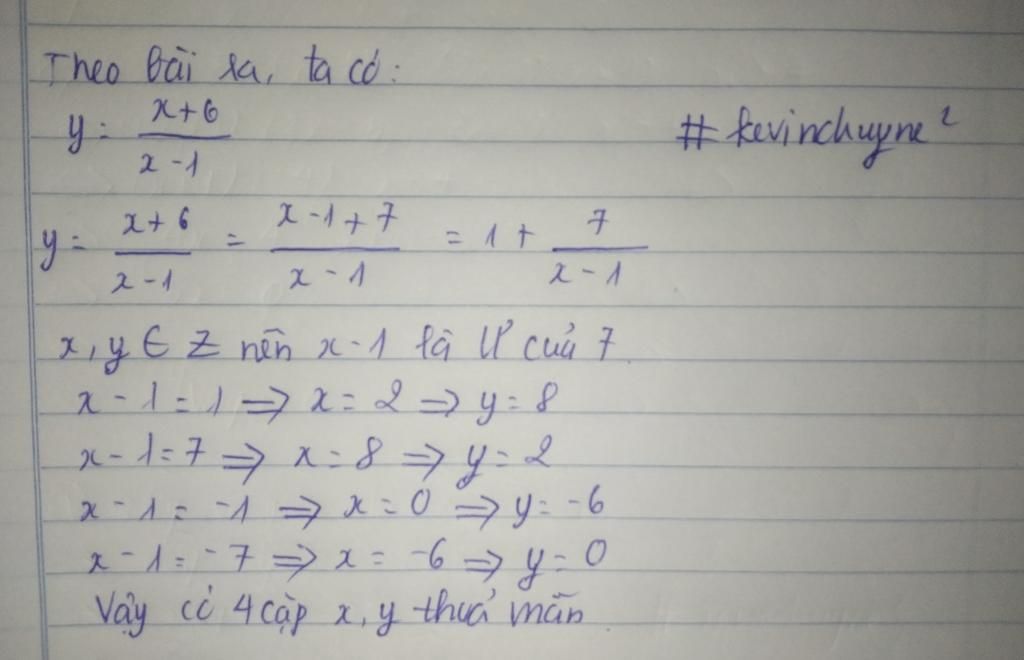 Theo bài ra, ta có:
y = \frac{x+6}{x-1}
#kevinchuyne²
y = \frac{x+6}{x-1} = \frac{x-1+7}{x-1} = 1 + \frac{7}{x-1}
x, y ∈ Z nên x-1 là Ư của 7.
x - 1 = 1 => x = 2 => y = 8
x - 1 = 7 => x = 8 => y = 2
x - 1 = -1 => x = 0 => y = -6
x - 1 = -7 => x = -6 => y = 0
Vậy có 4 cặp x, y thoả mãn